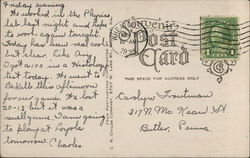 Friday evening
We worked in the Physics
lab last night and hope
to work again tonight.
Today has been real cool
but clear. Like any
got a 100 in a Histology
test today. We went to
Bethlehem this afternoon
for our game. We lost
20-13 but it was a
swell game. I am going
to play at Loyola
tomorrow.
Charles
Post
Card
THIS SPACE FOR ADDRESS ONLY
Carolyn Troutman
217 N. Mc Kean St.
Butler, Penna.